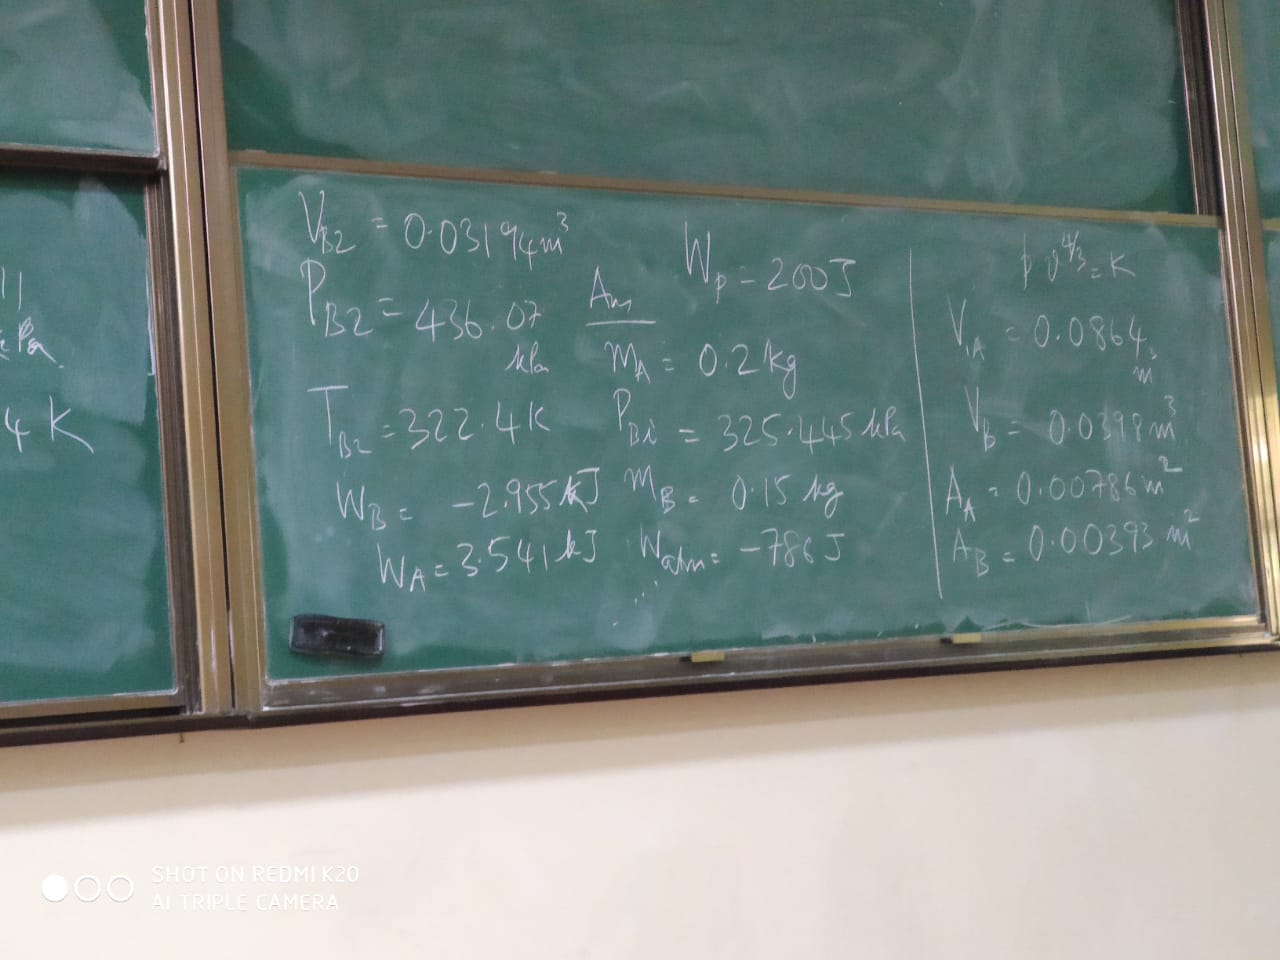 11
kPa
4 K
V_B2 = 0.03194 m³
P_B2 = 436.07
kPa
T_B2 = 322.4 K
W_B = -2.955 kJ
W_A = 3.541 kJ
W_p = 200 J
Ans
m_A = 0.2 kg
P_Bi = 325.445 kPa
m_B = 0.15 kg
W_atm = -786 J
p v^4/3 = K
V_1A = 0.0864
m³
V_B = 0.0398 m³
A_A = 0.00786 m²
A_B = 0.00393 m²
SHOT ON REDMI K20
AI TRIPLE CAMERA